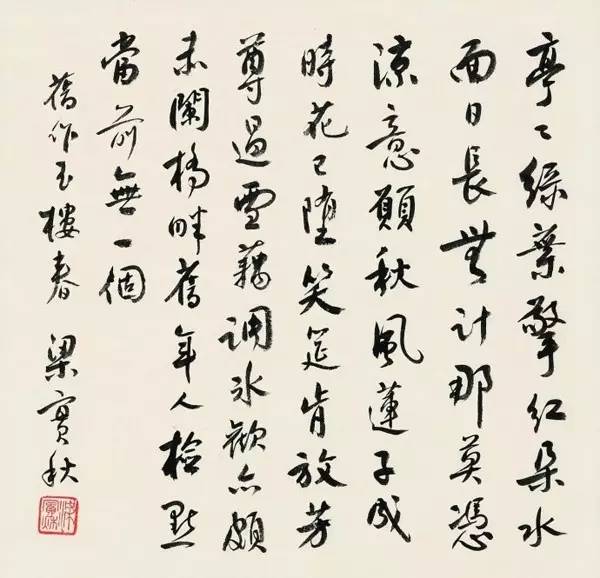 亭〻綠葉擎紅朵水
面日長無計那莫憑
涼意願秋風蓮子成
時花已墮笑筵肯放芳
尊過雪藕調冰歡亦頗
未闌橋畔舊年人檢點
當前無一個
舊作玉樓春 梁實秋
梁實秋